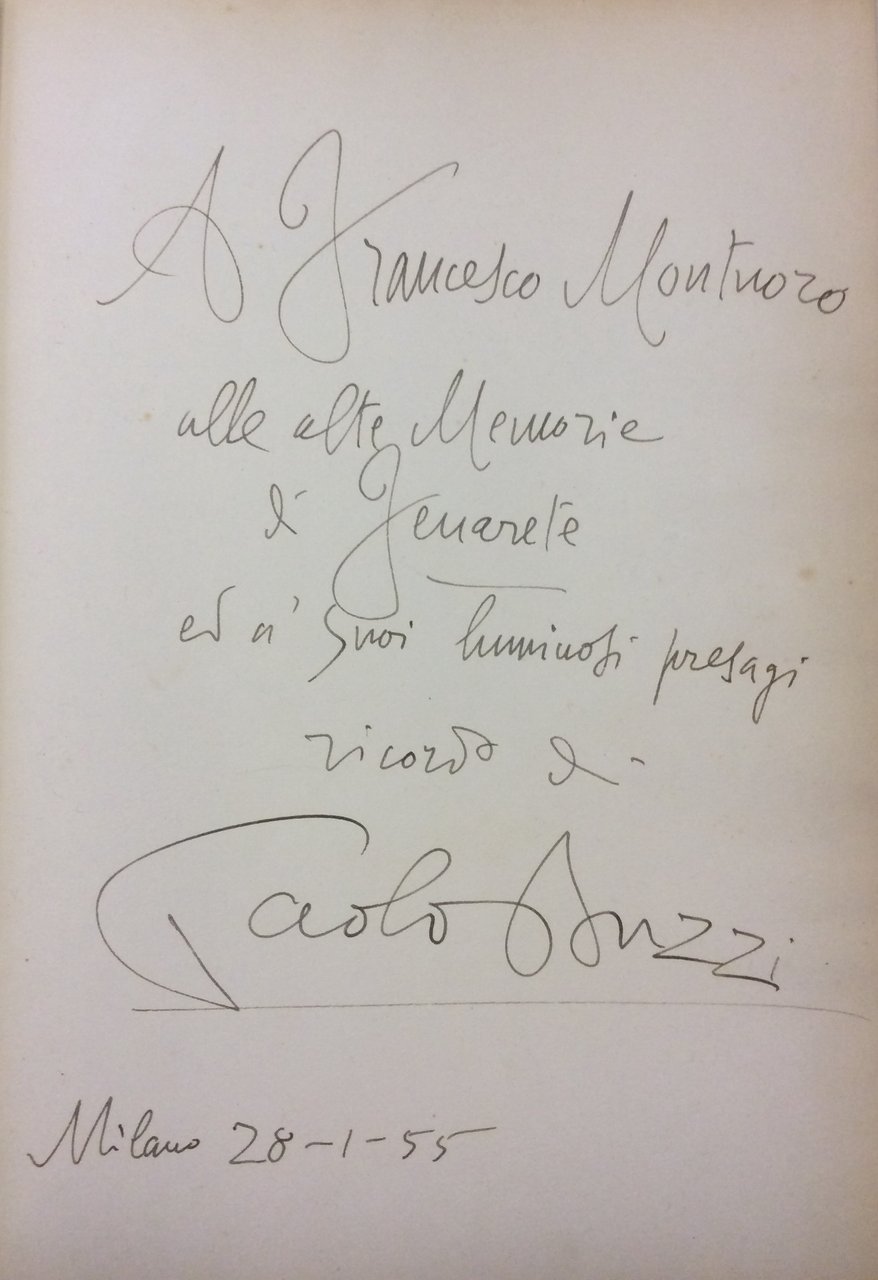 A Francesco Montuoro
alle alte Memorie
di Fenarete
ed a' suoi luminosi presagi
ricordo di
Paolo Buzzi
Milano 28-1-55